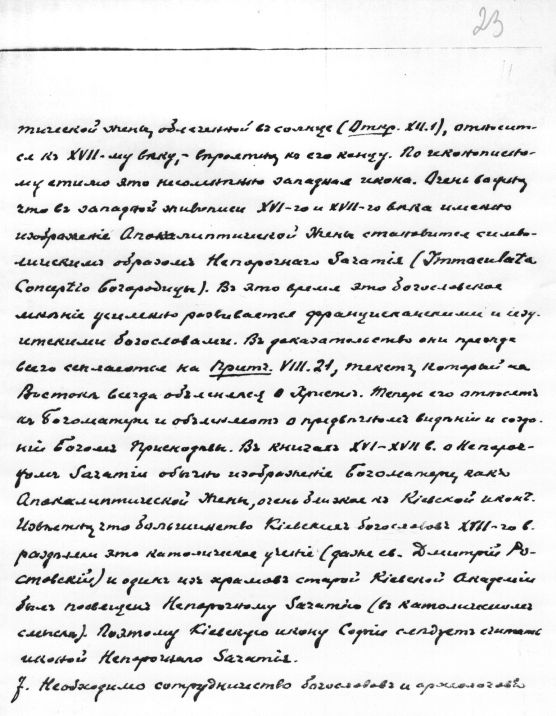 23
тической жены, облеченной въ солнце (Откр. XII.1), относит-
ся къ XVII-му вѣку, - вѣроятно къ его концу. По иконописно-
му стилю это несомнѣнно западная икона. Очень важно,
что въ западной живописи XVI-го и XVII-го вѣка именно
изображеніе Апокалиптической Жены становится симво-
лическимъ образомъ Непорочнаго Зачатія (Immaculata
Conceptio Богородицы). Въ это время это богословское
мнѣніе усиленно развивается францисканскими и iезу-
итскими богословами. Въ доказательство они прежде
всего ссылаются на Притч. VIII.21, текстъ, который на
Востокѣ всегда объяснялся о Христѣ. Теперь его относятъ
къ Богоматери и объясняютъ о предвѣчномъ видѣніи и созда-
ніи Богомъ Приснодѣвы. Въ книгахъ XVI-XVII в. о Непороч-
номъ Зачатіи обычно изображеніе Богоматери, какъ
Апокалиптической Жены, очень близкое къ Кіевской иконѣ.
Извѣстно, что большинство Кіевскихъ богослововъ XVII-го в.
раздѣляли это католическое ученіе (даже св. Дмитрій Ро-
стовскій) и одинъ изъ храмовъ старой Кіевской Академіи
былъ посвященъ Непорочному Зачатію (въ католическомъ
смыслѣ). Поэтому Кіевскую икону Софіи слѣдуетъ считать
иконой Непорочнаго Зачатія.
7. Необходимо сотрудничество богослововъ и археологовъ